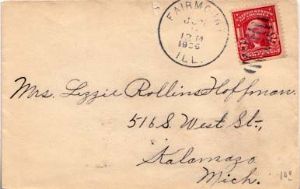 FAIRMOUNT
12 M
1906
ILL.
Mrs. Lizzie Rollins Hoffman.
516 S. West St.,
Kalamazo
Mich.